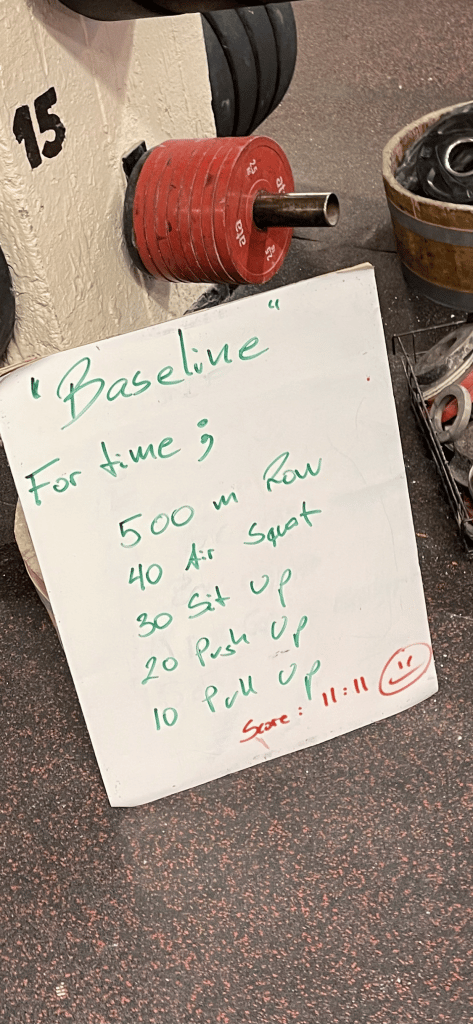 15
25
25
"Baseline"
For time ;
500 m Row
40 Air Squat
30 Sit Up
20 Push Up
10 Pull Up
Score: 11:11